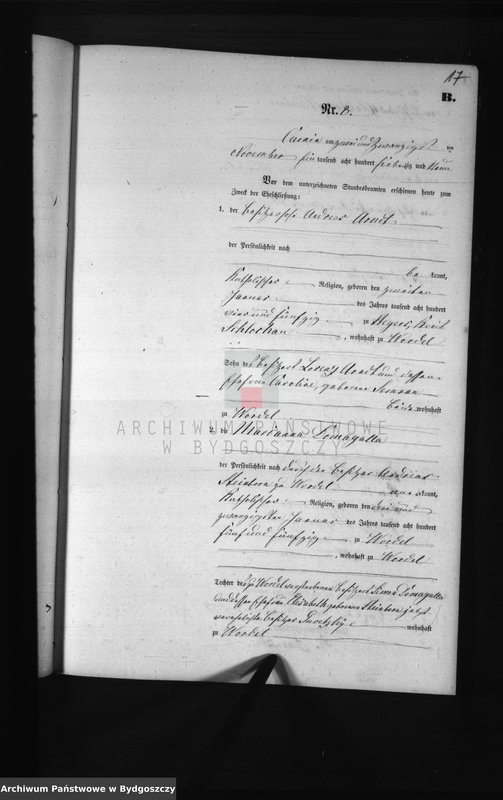 17
B.
Nr. 8.
am zwei und zwanzigsten
November ein tausend acht hundert siebenzig und neun
Vor dem unterzeichneten Standesbeamten erschienen heute zum
Zweck der Eheschließung:
1. der Besitzersohn Andreas Arndt
der Persönlichkeit nach
be kannt,
katholischer Religion, geboren den zweiten
Januar des Jahres tausend acht hundert
vier und fünfzig zu Kreis
Schlochau, wohnhaft zu Wordel
Sohn des Besitzers Lorenz Arndt und dessen
Ehefrau Caroline, geborene
beide wohnhaft
zu Wordel
2. die Marianna Domagalla
der Persönlichkeit nach durch den Besitzer
zu Wordel kannt,
katholischer Religion, geboren den drei und
zwanzigsten Januar des Jahres tausend acht hundert
fünf und fünfzig zu Wordel
, wohnhaft zu Wordel
Tochter des zu Wordel verstorbenen Besitzers Simon Domagalla
und dessen Ehefrau Elisabeth geborenen jetzt
verehelichte Besitzer wohnhaft
zu Wordel
ARCHIWUM PAŃSTWOWE
W BYDGOSZCZY
Archiwum Państwowe w Bydgoszczy